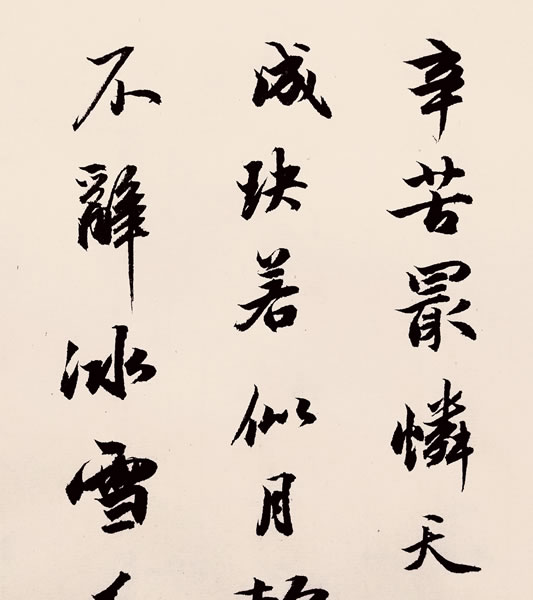 辛苦最憐天
成玦若似月
不辭冰雪